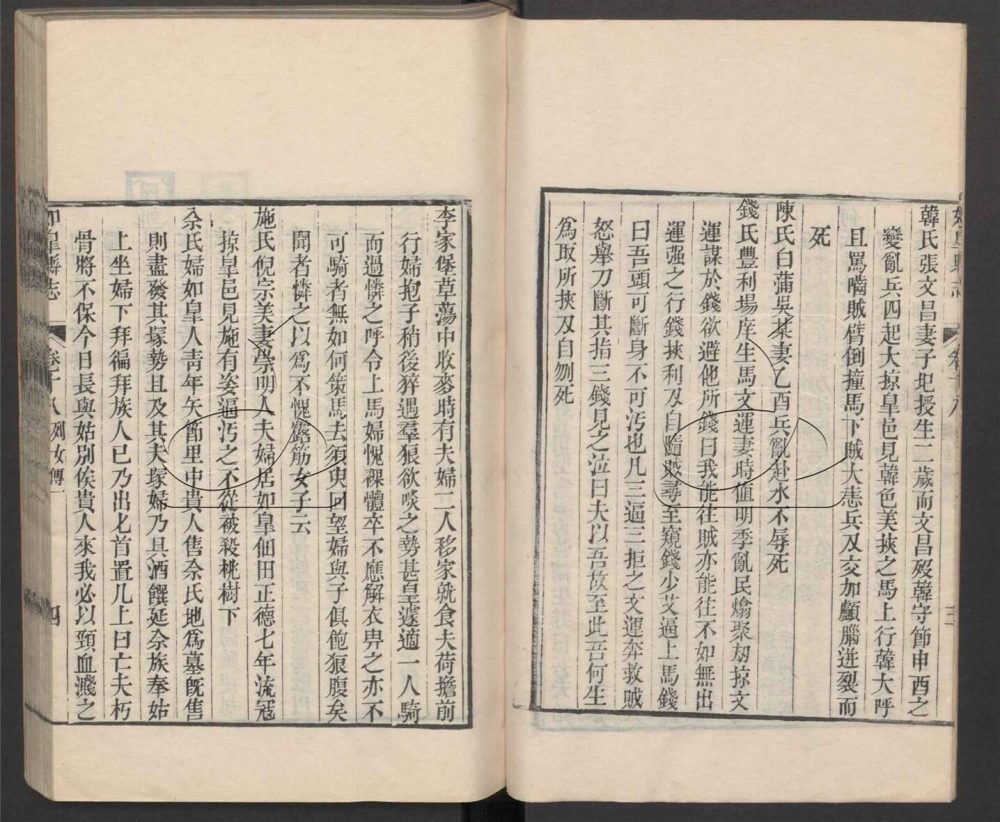 韓氏張文昌妻子玘授生二歲而文昌歿韓守節申酉之
變亂兵四起大掠皐邑見韓色美挾之馬上行韓大呼
且罵嚙賊臂倒撞馬下賊大恚兵刄交加顱腦迸裂而
死
陳氏白蒲吳某妻乙酉兵亂赴水不辱死
錢氏豐利場庠生馬文運妻時値明季亂民熖聚刼掠文
運謀於錢欲避他所錢曰我能往賊亦能往不如無出
運强之行錢挾利刄自隨蹤尋至窺錢小艾逼上馬錢
曰吾頭可斷身不可汚也凡三逼三拒之文運奔救賊
怒舉刀斷其指三錢見之泣曰夫以吾故至此吾何生
爲取所挾刄自刎死
卷十八
三
李家堡草蕩中收麥時有夫婦二人移家就食夫荷擔前
行婦抱子稍後猝遇羣狼欲啖之勢甚皇遽適一人騎
而過憐之呼令上馬婦愧裸體卒不應解衣畀之亦不
可騎者無如何策馬去須臾回望婦與子俱飽狼腹矣
聞者憐之以爲不愧露筋女子云
施氏倪宗美妻崇明人夫婦居如皐佃田正德七年流冦
掠皐邑見施有姿逼汚之不從被殺桃樹下
佘氏婦如皐人靑年矢節里中貴人售佘氏地爲墓旣售
則盡發其塚勢且及其夫塚婦乃具酒饌延佘族奉姑
上坐婦下拜徧拜族人已乃出匕首置几上曰亡夫朽
骨將不保今日長與姑別俟貴人來我必以頸血濺之
如皐縣志
卷十八 列女傳一
四